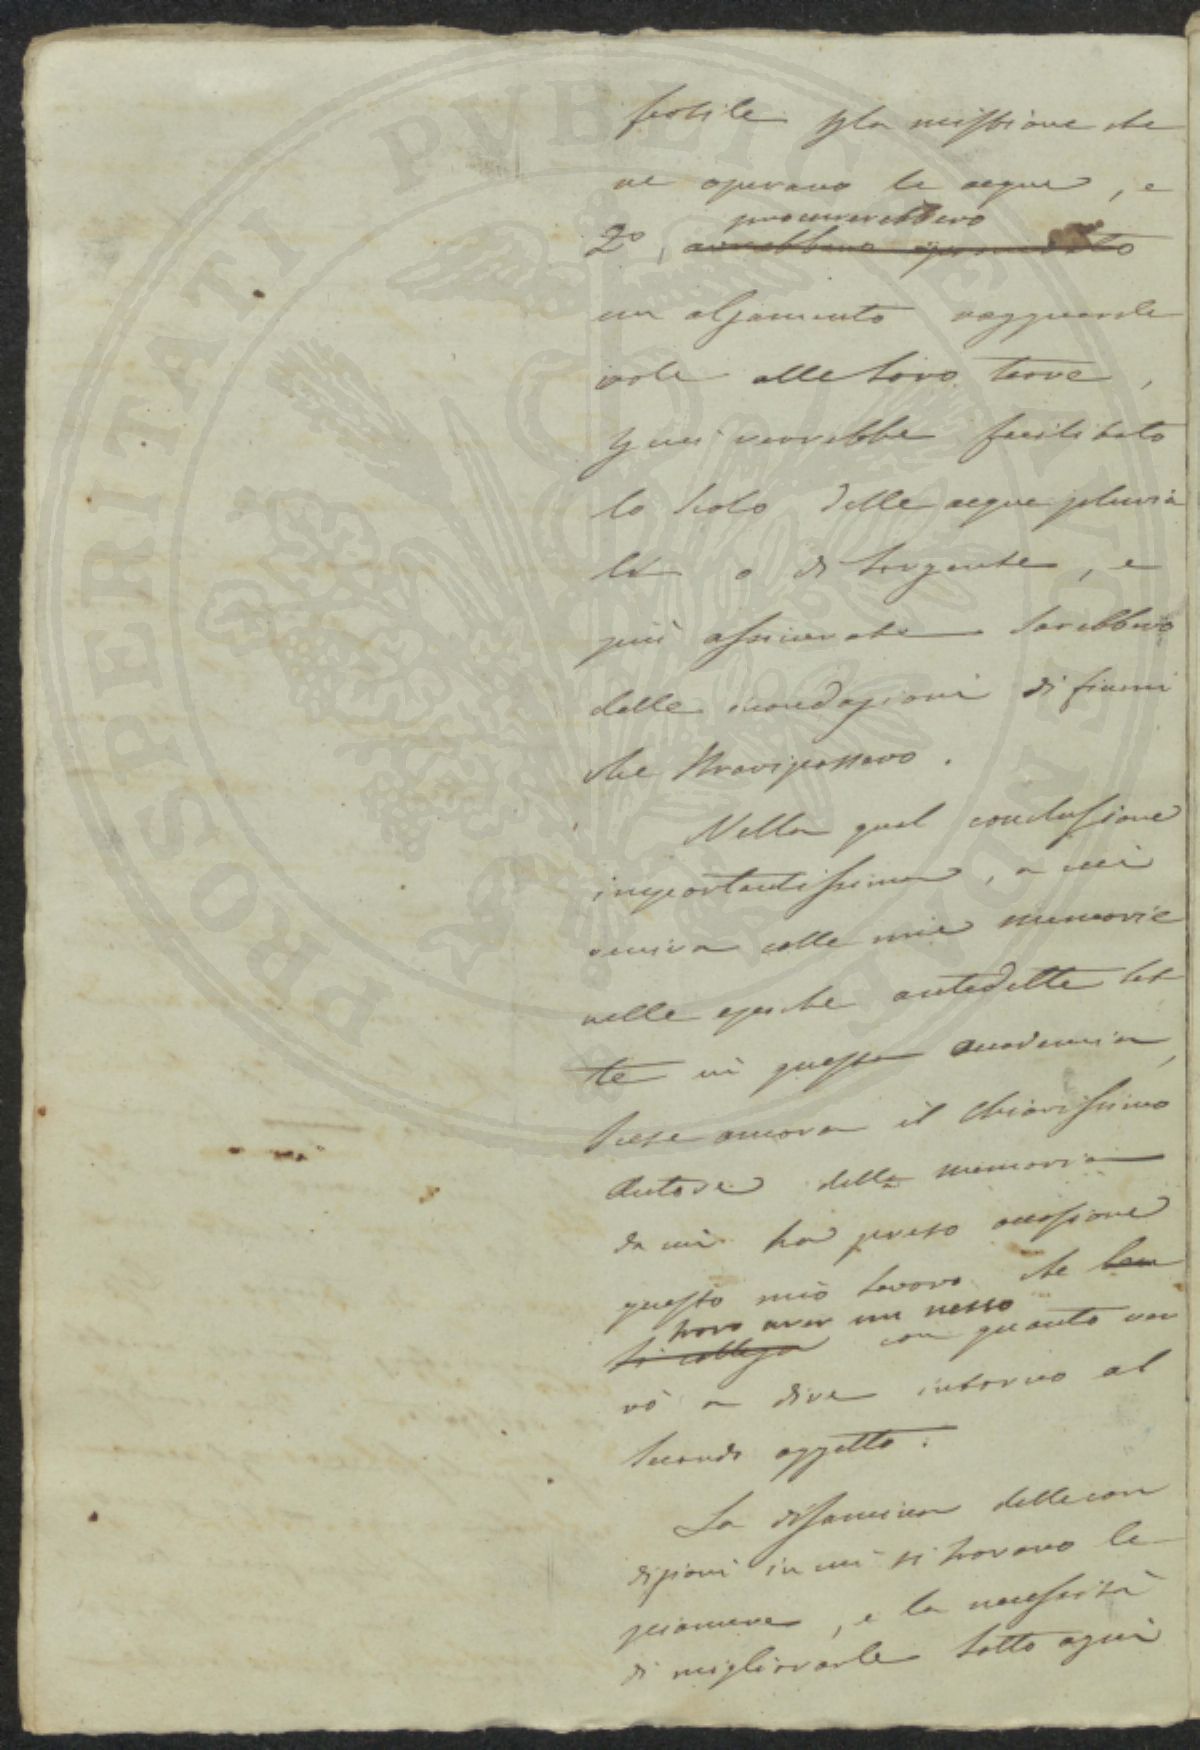 PROSPERITATI PVBLICAE AVGENDAE
fertile p la missione che
ne operano le acque, e
procurerebbero
2° avrebbero procurato
un alzamento ragguarde
vole alle loro terre,
p cui verrebbe facilitato
lo scolo delle acque pluvia
li o di sorgente, e
più assicurate sarebbero
dalle inondazioni di fiumi
che straripassero.
Nella qual conclusione
importantissima, a cui
veniva colle mie memorie
nelle epoche antedette let
te in questa accademia,
scese ancora il chiarissimo
Autore della memoria
da cui ha preso occasione
questo mio lavoro, che ben
trovo aver un nesso
si collega con quanto ver
rò a dire intorno al
secondo oggetto.
La disamina delle con
dizioni in cui si trovano le
pianure, e la necessità
di migliorarle sotto ogni